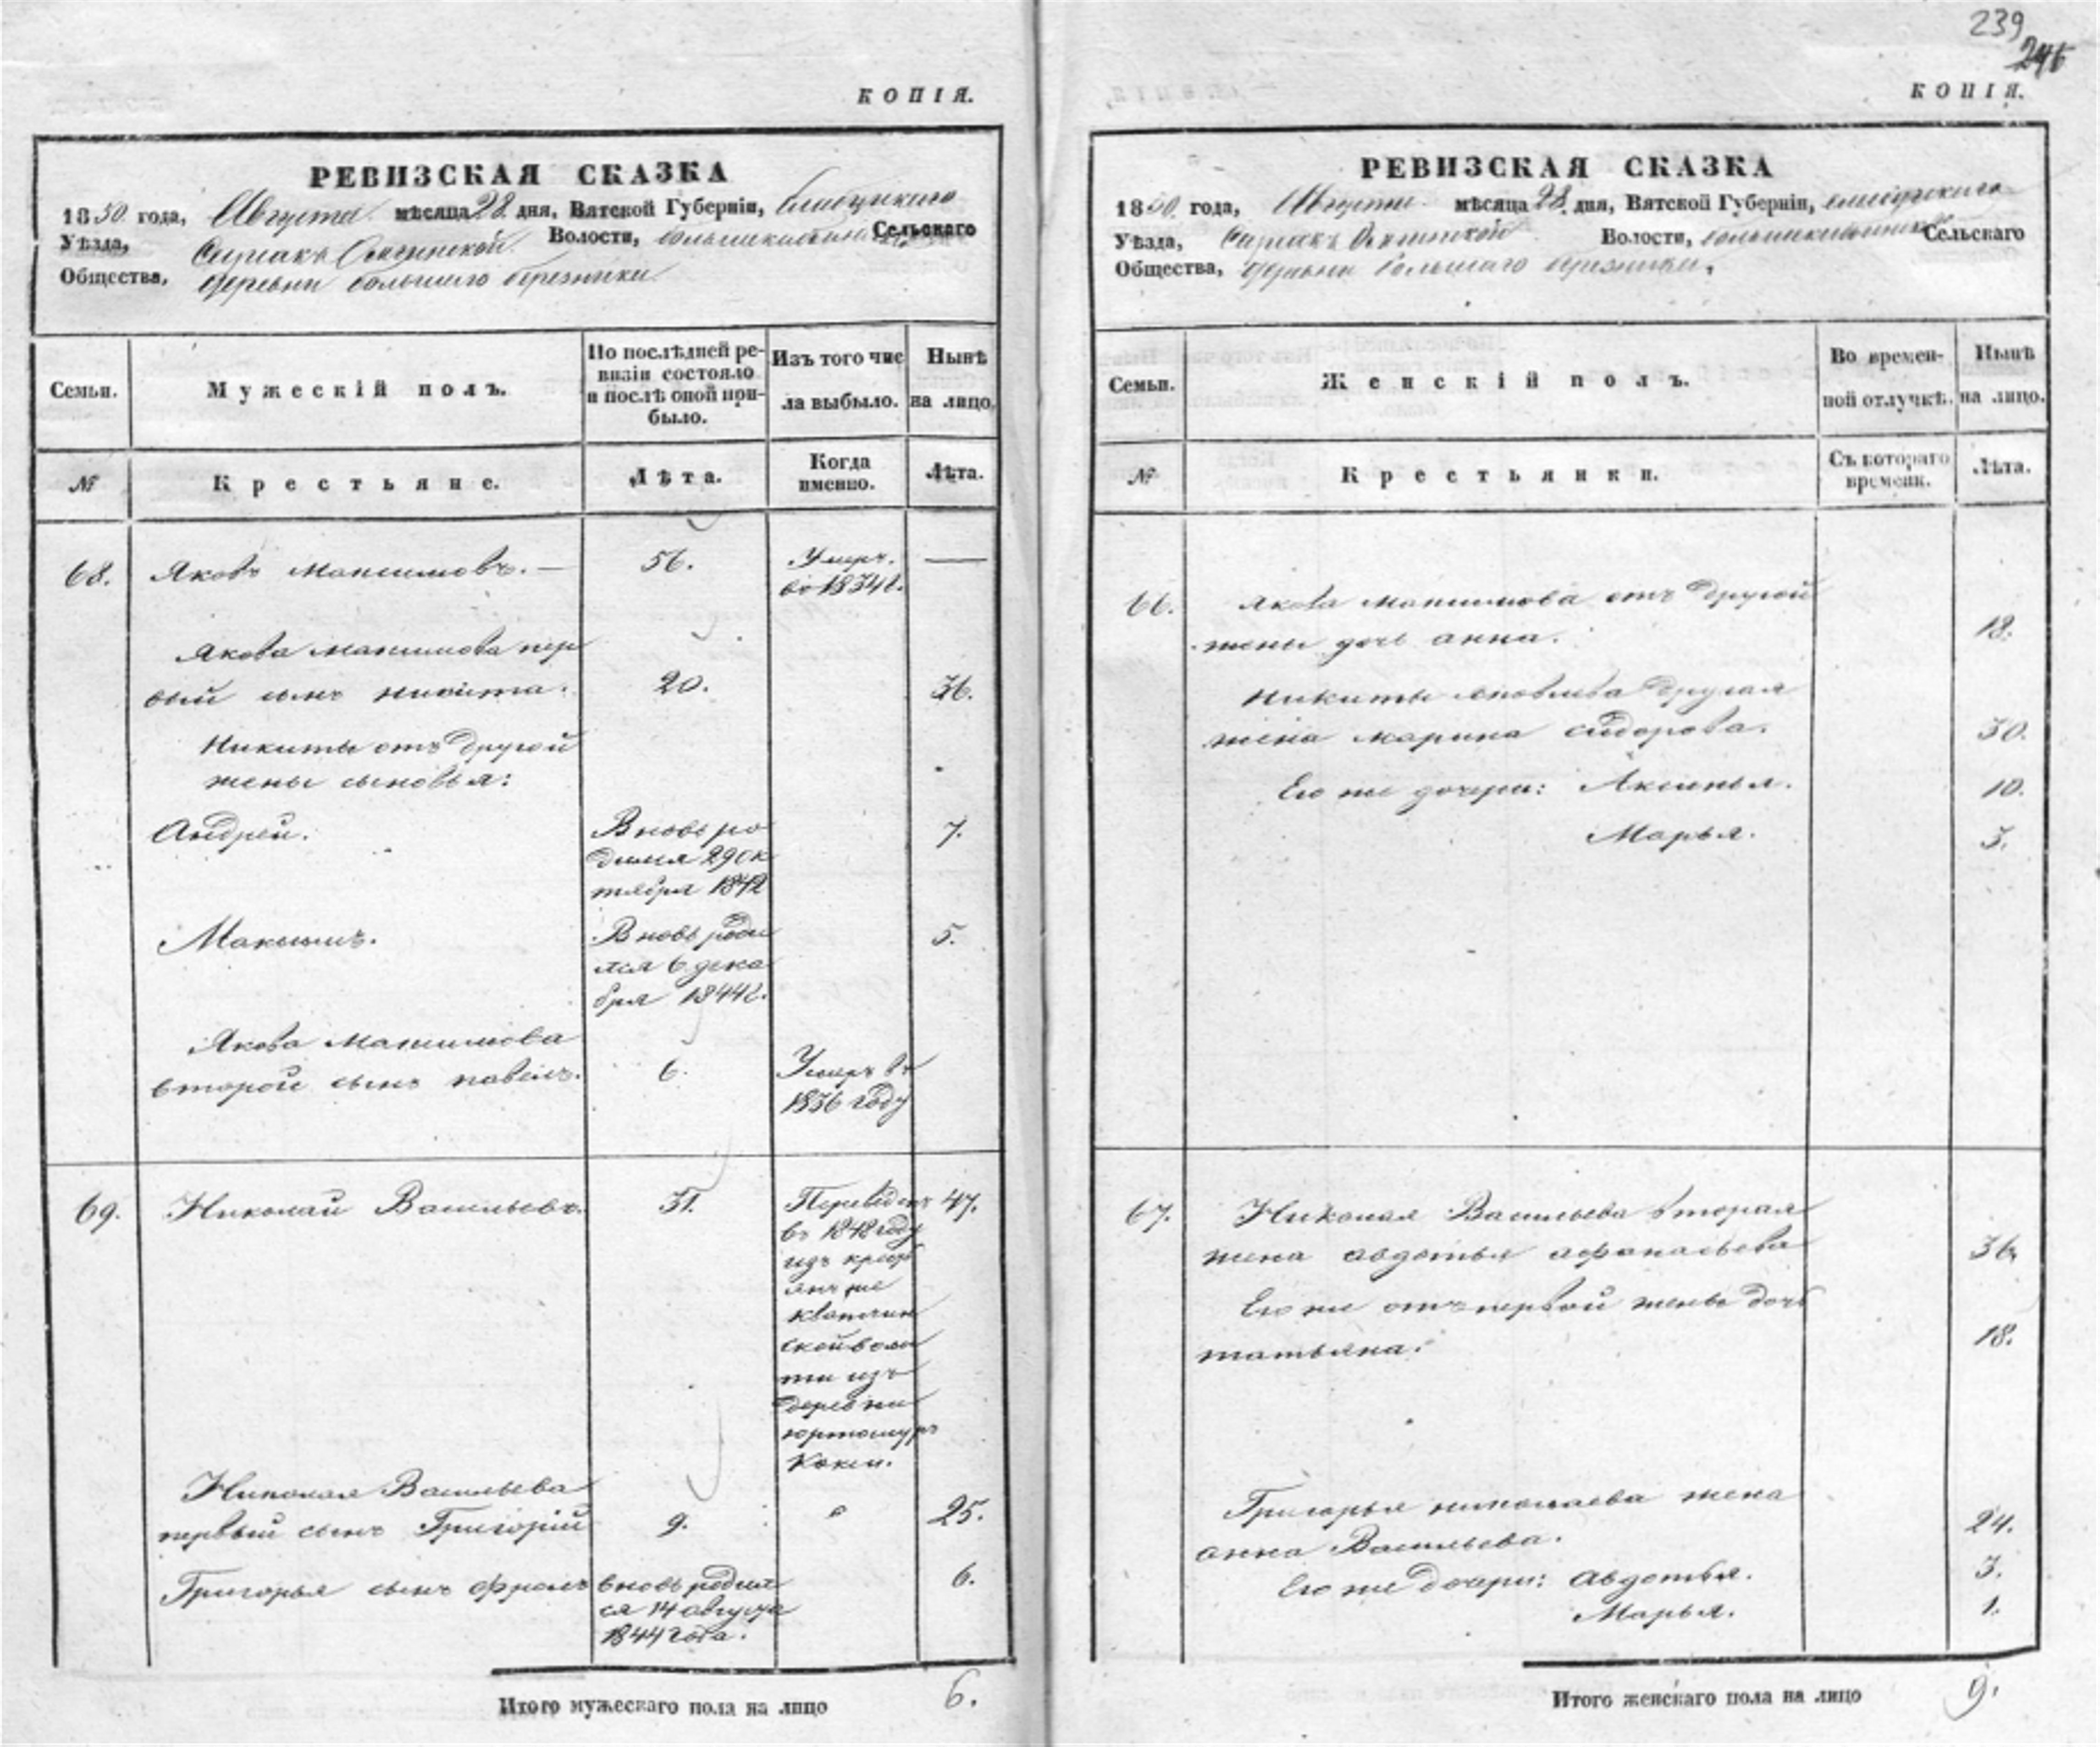 239
246
КОПІЯ.
РЕВИЗСКАЯ СКАЗКА
1850. года, Августа мѣсяца 28. дня, Вятской Губерніи,
Уѣзда, Волости, Сельскаго
Общества, деревни большаго березника
Семьи.
Мужескій полъ.
По послѣдней ре-
визіи состояло
и послѣ оной при-
было.
Изъ того чис
ла выбыло.
Нынѣ
на лицо.
№
Крестьяне.
Лѣта.
Когда
именно.
Лѣта.
68. Яковъ Максимовъ. — 56. Умеръ. —
во 1834 г.
Якова Максимова пер
вый сынъ никита. 20. 36.
Никиты отъ другой
жены сыновья:
Андрей. Вновь ро 7.
дился 29 ок
тября 1842
Максимъ. Вновь роди 5.
лся 6 дека
бря 1844 г.
Якова Максимова
второй сынъ павелъ. 6. Умеръ въ
1836 году
69. Николай Васильевъ. 31. Переведенъ 47.
въ 1848 году
изъ крест
янъ же
скойволос
ти изъ
деревни
Николая Васильева
первый сынъ Григорій 9. 25.
Григорья сынъ фролъ вновь родил 6.
ся 14 августа
1844 года.
Итого мужескаго пола на лицо 6.
КОПІЯ.
РЕВИЗСКАЯ СКАЗКА
1850. года, Августа мѣсяца 28. дня, Вятской Губерніи,
Уѣзда, Волости, Сельскаго
Общества, деревни большаго березника,
Семьи.
Женскій полъ.
Во времен-
ной отлучкѣ.
Нынѣ
на лицо.
№
Крестьянки.
Съ котораго
времени.
Лѣта.
66. Якова Максимова отъ другой
жены дочь анна. 18.
Никиты яковлева другая
жена марина сидорова. 30.
Его же дочери: Аксинья. 10.
Марья. 3.
67. Николая Васильева вторая
жена авдотья афанасьева 36.
Его же отъ первой жены дочь
татьяна. 18.
Григорья николаева жена
анна Васильева. 24.
Его же дочери: авдотья. 3.
Марья. 1.
Итого женскаго пола на лицо 9.